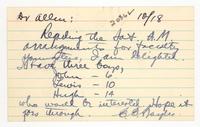 Dr Allen: 10/18
Reading the Sat. A.M.
arrangements for faculty
youngsters, I am delighted.
I have three boys,
John - 6
Lewis - 10
Hugh - 12
who would be interested. Hope it
goes through.